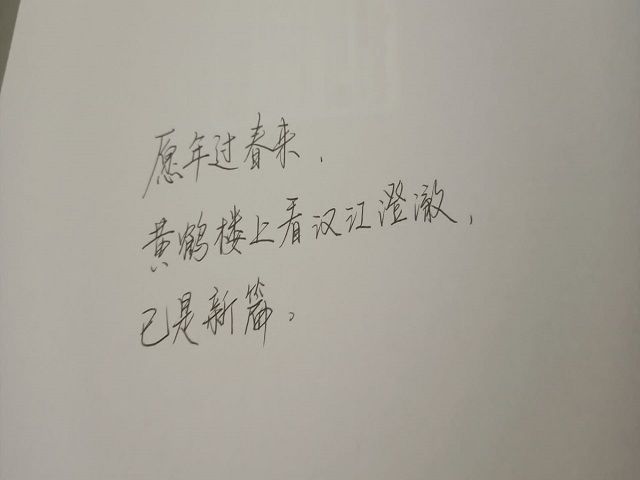 愿年过春来，
黄鹤楼上看汉江澄澈，
已是新篇。